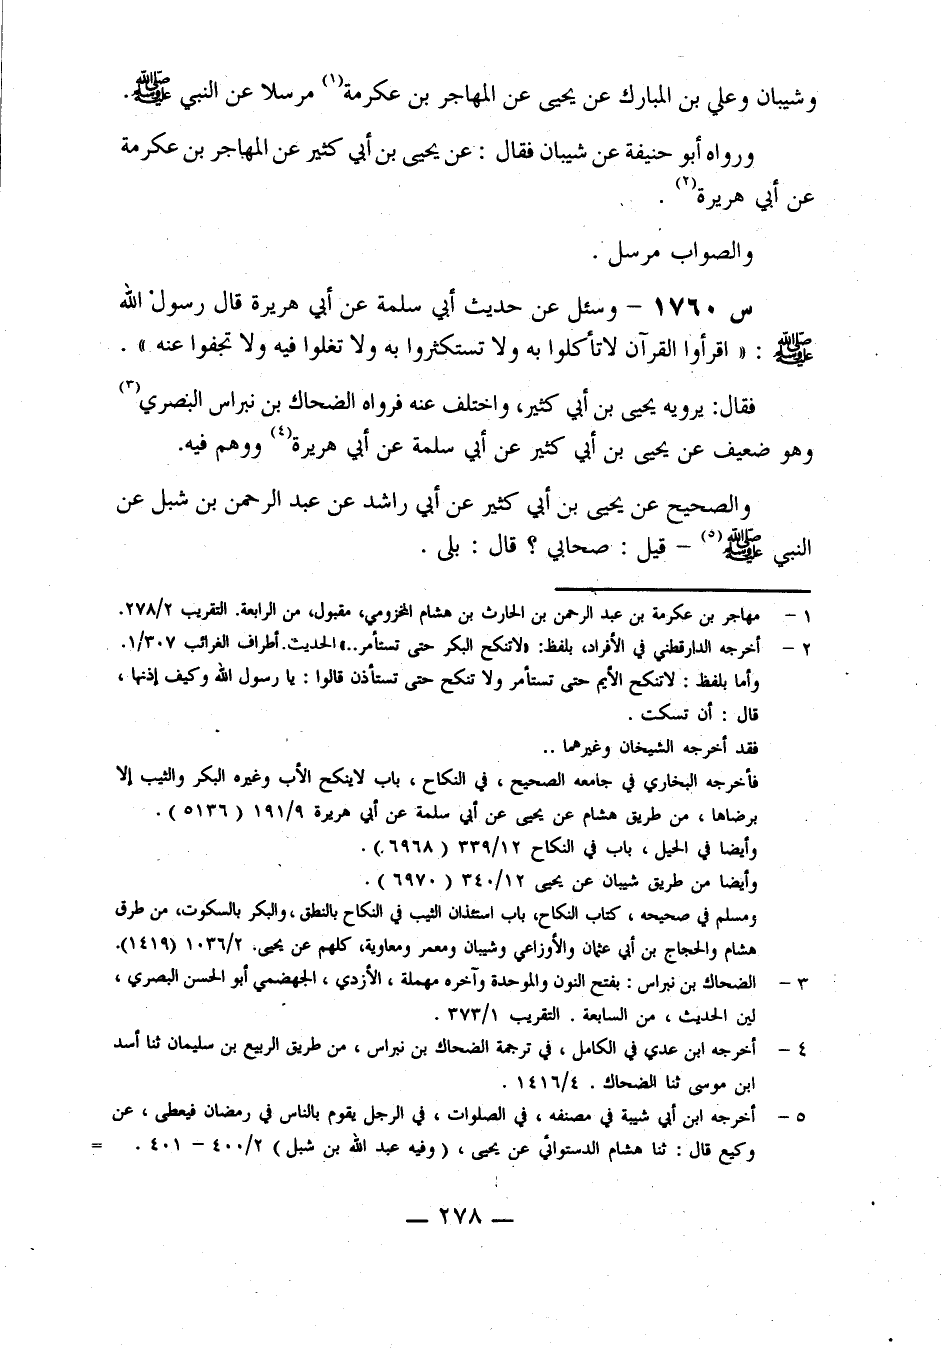 وشيبان وعلي بن المبارك عن يحيى عن المهاجر بن عكرمة(١) مرسلا عن النبي ﷺ.
ورواه أبو حنيفة عن شيبان فقال : عن يحيى بن أبي كثير عن المهاجر بن عكرمة
عن أبي هريرة(٢) .
والصواب مرسل .
س ١٧٦٠ – وسئل عن حديث أبي سلمة عن أبي هريرة قال رسول الله
ﷺ : « اقرأوا القرآن لاتأكلوا به ولا تستكثروا به ولا تغلوا فيه ولا تجفوا عنه » .
فقال: يرويه يحيى بن أبي كثير، واختلف عنه فرواه الضحاك بن نبراس البصري(٣)
وهو ضعيف عن يحيى بن أبي كثير عن أبي سلمة عن أبي هريرة(٤) ووهم فيه.
والصحيح عن يحيى بن أبي كثير عن أبي راشد عن عبد الرحمن بن شبل عن
النبي ﷺ(٥) – قيل : صحابي ؟ قال : بلى .
١ – مهاجر بن عكرمة بن عبد الرحمن بن الحارث بن هشام المخزومي، مقبول، من الرابعة. التقريب ٢٧٨/٢.
٢ – أخرجه الدارقطني في الأفراد، بلفظ: «لاتنكح البكر حتى تستأمر..» الحديث. أطراف الغرائب ١/٣٠٧.
وأما بلفظ : لاتنكح الأيم حتى تستأمر ولا تنكح حتى تستأذن قالوا : يا رسول الله وكيف إذنها ،
قال : أن تسكت .
فقد أخرجه الشيخان وغيرهما ..
فأخرجه البخاري في جامعه الصحيح ، في النكاح ، باب لاينكح الأب وغيره البكر والثيب إلا
برضاها ، من طريق هشام عن يحيى عن أبي سلمة عن أبي هريرة ١٩١/٩ ( ٥١٣٦ ) .
وأيضا في الحيل ، باب في النكاح ٣٣٩/١٢ ( ٦٩٦٨ ) .
وأيضا من طريق شيبان عن يحيى ٣٤٠/١٢ ( ٦٩٧٠ ) .
ومسلم في صحيحه ، كتاب النكاح، باب استئذان الثيب في النكاح بالنطق ، والبكر بالسكوت، من طرق
هشام والحجاج بن أبي عثمان والأوزاعي وشيبان ومعمر ومعاوية، كلهم عن يحيى. ١٠٣٦/٢ (١٤١٩).
٣ – الضحاك بن نبراس : بفتح النون والموحدة وآخره مهملة ، الأزدي ، الجهضمي أبو الحسن البصري ،
لين الحديث ، من السابعة . التقريب ٣٧٣/١ .
٤ – أخرجه ابن عدي في الكامل ، في ترجمة الضحاك بن نبراس ، من طريق الربيع بن سليمان ثنا أسد
ابن موسى ثنا الضحاك . ١٤١٦/٤ .
٥ – أخرجه ابن أبي شيبة في مصنفه ، في الصلوات ، في الرجل يقوم بالناس في رمضان فيعطى ، عن
وكيع قال : ثنا هشام الدستوائي عن يحيى ، ( وفيه عبد الله بن شبل ) ٤٠٠/٢ – ٤٠١ . =
— ٢٧٨ —